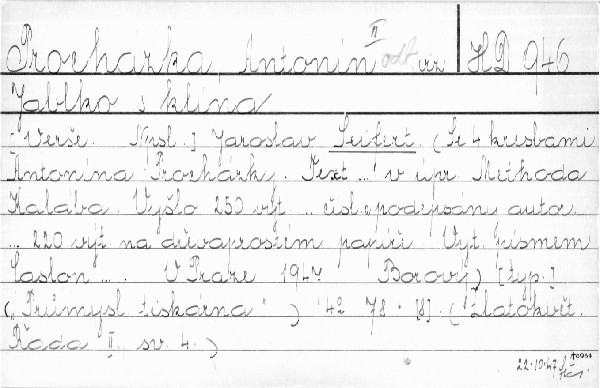 Procházka Antonín II odt. ilr. HD 946
Jablko s klína
- Verše. Npsl.] Jaroslav Seifert. (Se 4 kresbami
Antonína Procházky. Text ...' v úpr. Methoda
Kalába. Vyšlo 250 výt ... čísl. a podepsány autor.
... 220 výt na dřevaprostém papíře. Vyt. písmem
Caslon ... . V Praze 1947. Borový) [typ.]
("Průmysl. tiskárna") 4° 78 . [8]. (Zlatokvět.
Řada II. sv. 4.)
22.10.47